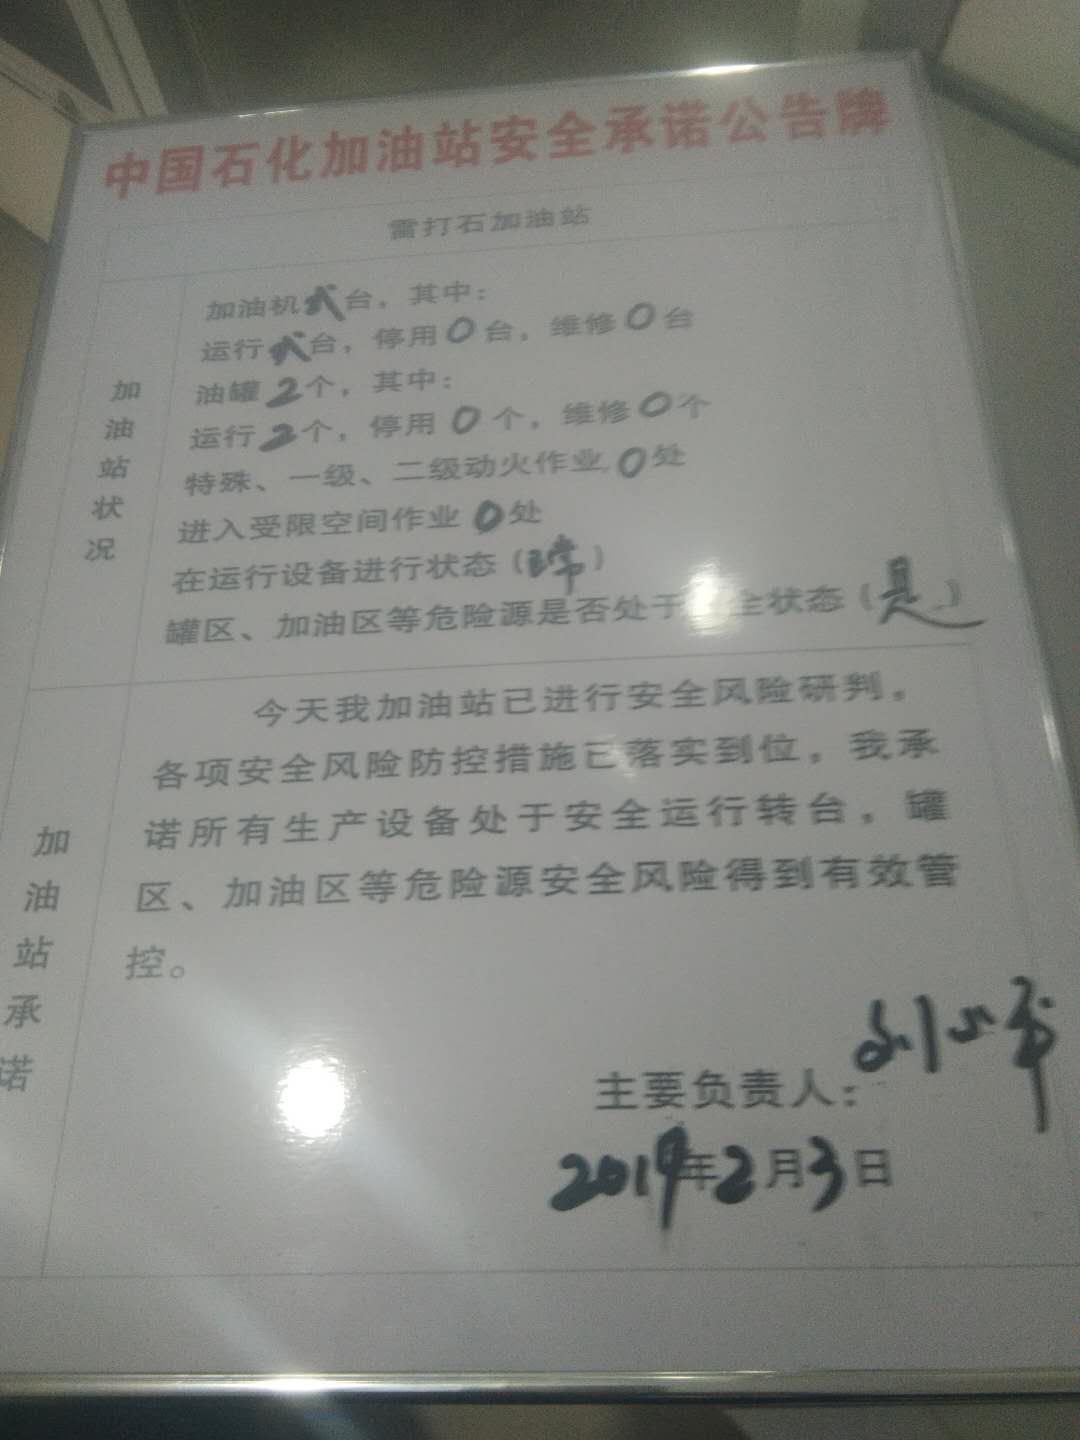 中国石化加油站安全承诺公告牌
雷打石加油站
加油站状况
加油机弍台，其中：
运行弍台，停用0台，维修0台
油罐2个，其中：
运行2个，停用0个，维修0个
特殊、一级、二级动火作业0处
进入受限空间作业0处
在运行设备进行状态（正常）
罐区、加油区等危险源是否处于全状态（是）
加油站承诺
今天我加油站已进行安全风险研判，
各项安全风险防控措施已落实到位，我承
诺所有生产设备处于安全运行转台，罐
区、加油区等危险源安全风险得到有效管
控。
主要负责人：刘
2019年2月3日